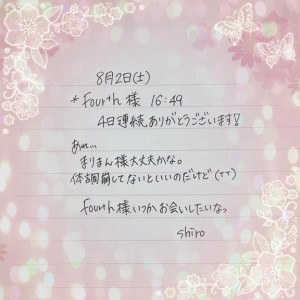 8月2日(土)
*fourth様 16:49
4日連続ありがとうございます!
あれ…
まりまん様大丈夫かな。
体調崩してないといいのだけど(TT)
fourth様いつかお会いしたいなっ
shiro